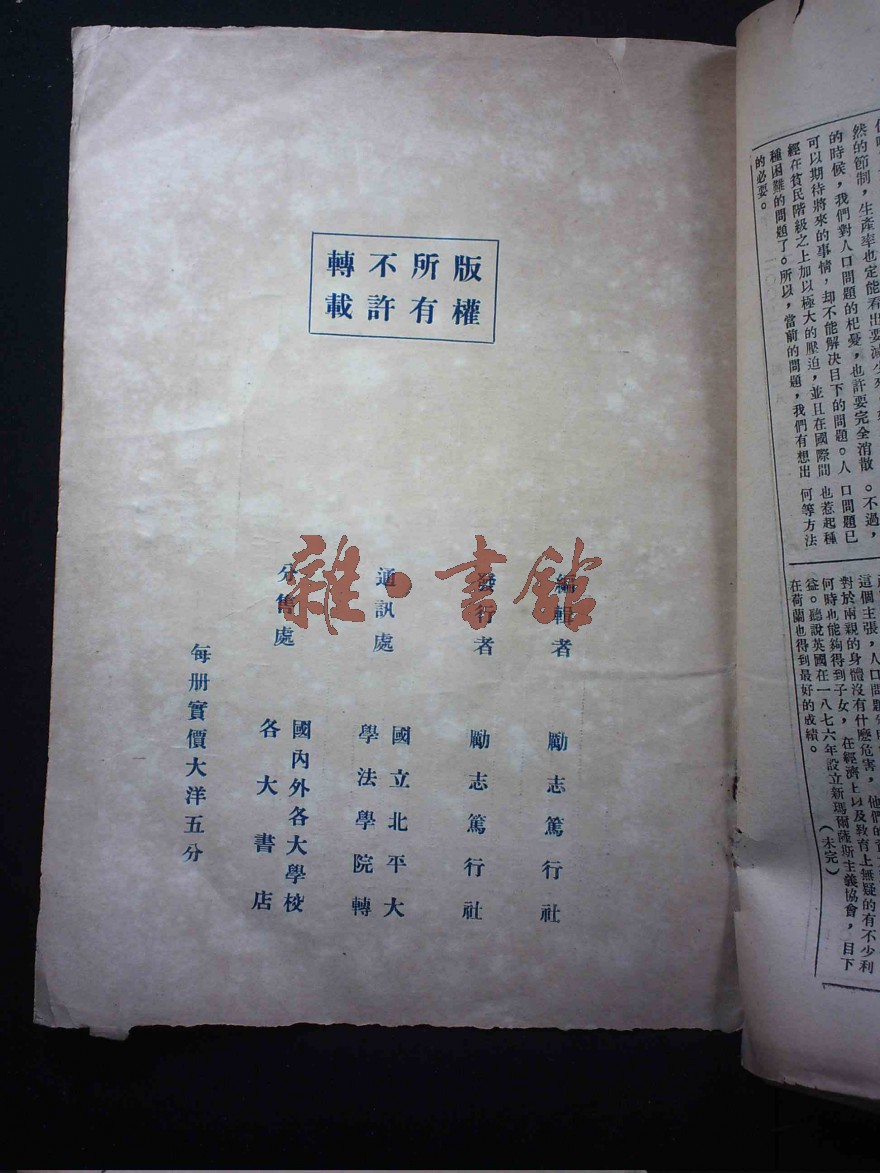 的時候，我們對人口問題的杞憂，也許要完全消散。不過，
可以期待將來的事情，却不能解决目下的問題。人口問題已
經在貧民階級之上加以極大的壓迫，並且在國際間也惹起種
種困難的問題了。所以，當前的問題，我們有想出何等方法
的必要。
對於兩親的身體沒有什麼危害，
何時也能夠得到子女，在經濟上以及教育上無疑的有不少利
益。聽說英國在一八七六年設立新瑪爾薩斯主義協會，目下
在荷蘭也得到最好的成績。（未完）
版權
所有
不許
轉載
編輯者 勵志篤行社
發行者 勵志篤行社
通訊處 國立北平大
學法學院轉
分售處 國內外各大學校
各大書店
每册實價大洋五分
雜·書館